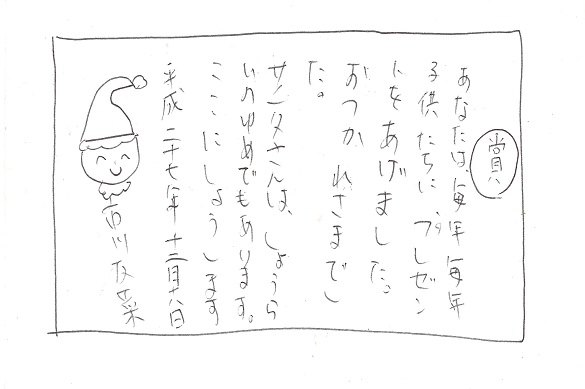 賞
あなたは、毎年毎年
子供たちに、プレゼン
トをあげました。
おつかれさまでし
た。
サンタさんは、しょうら
いのゆめでもあります。
ここにしょうします
平成二十七年十二月十八日
古川友菜